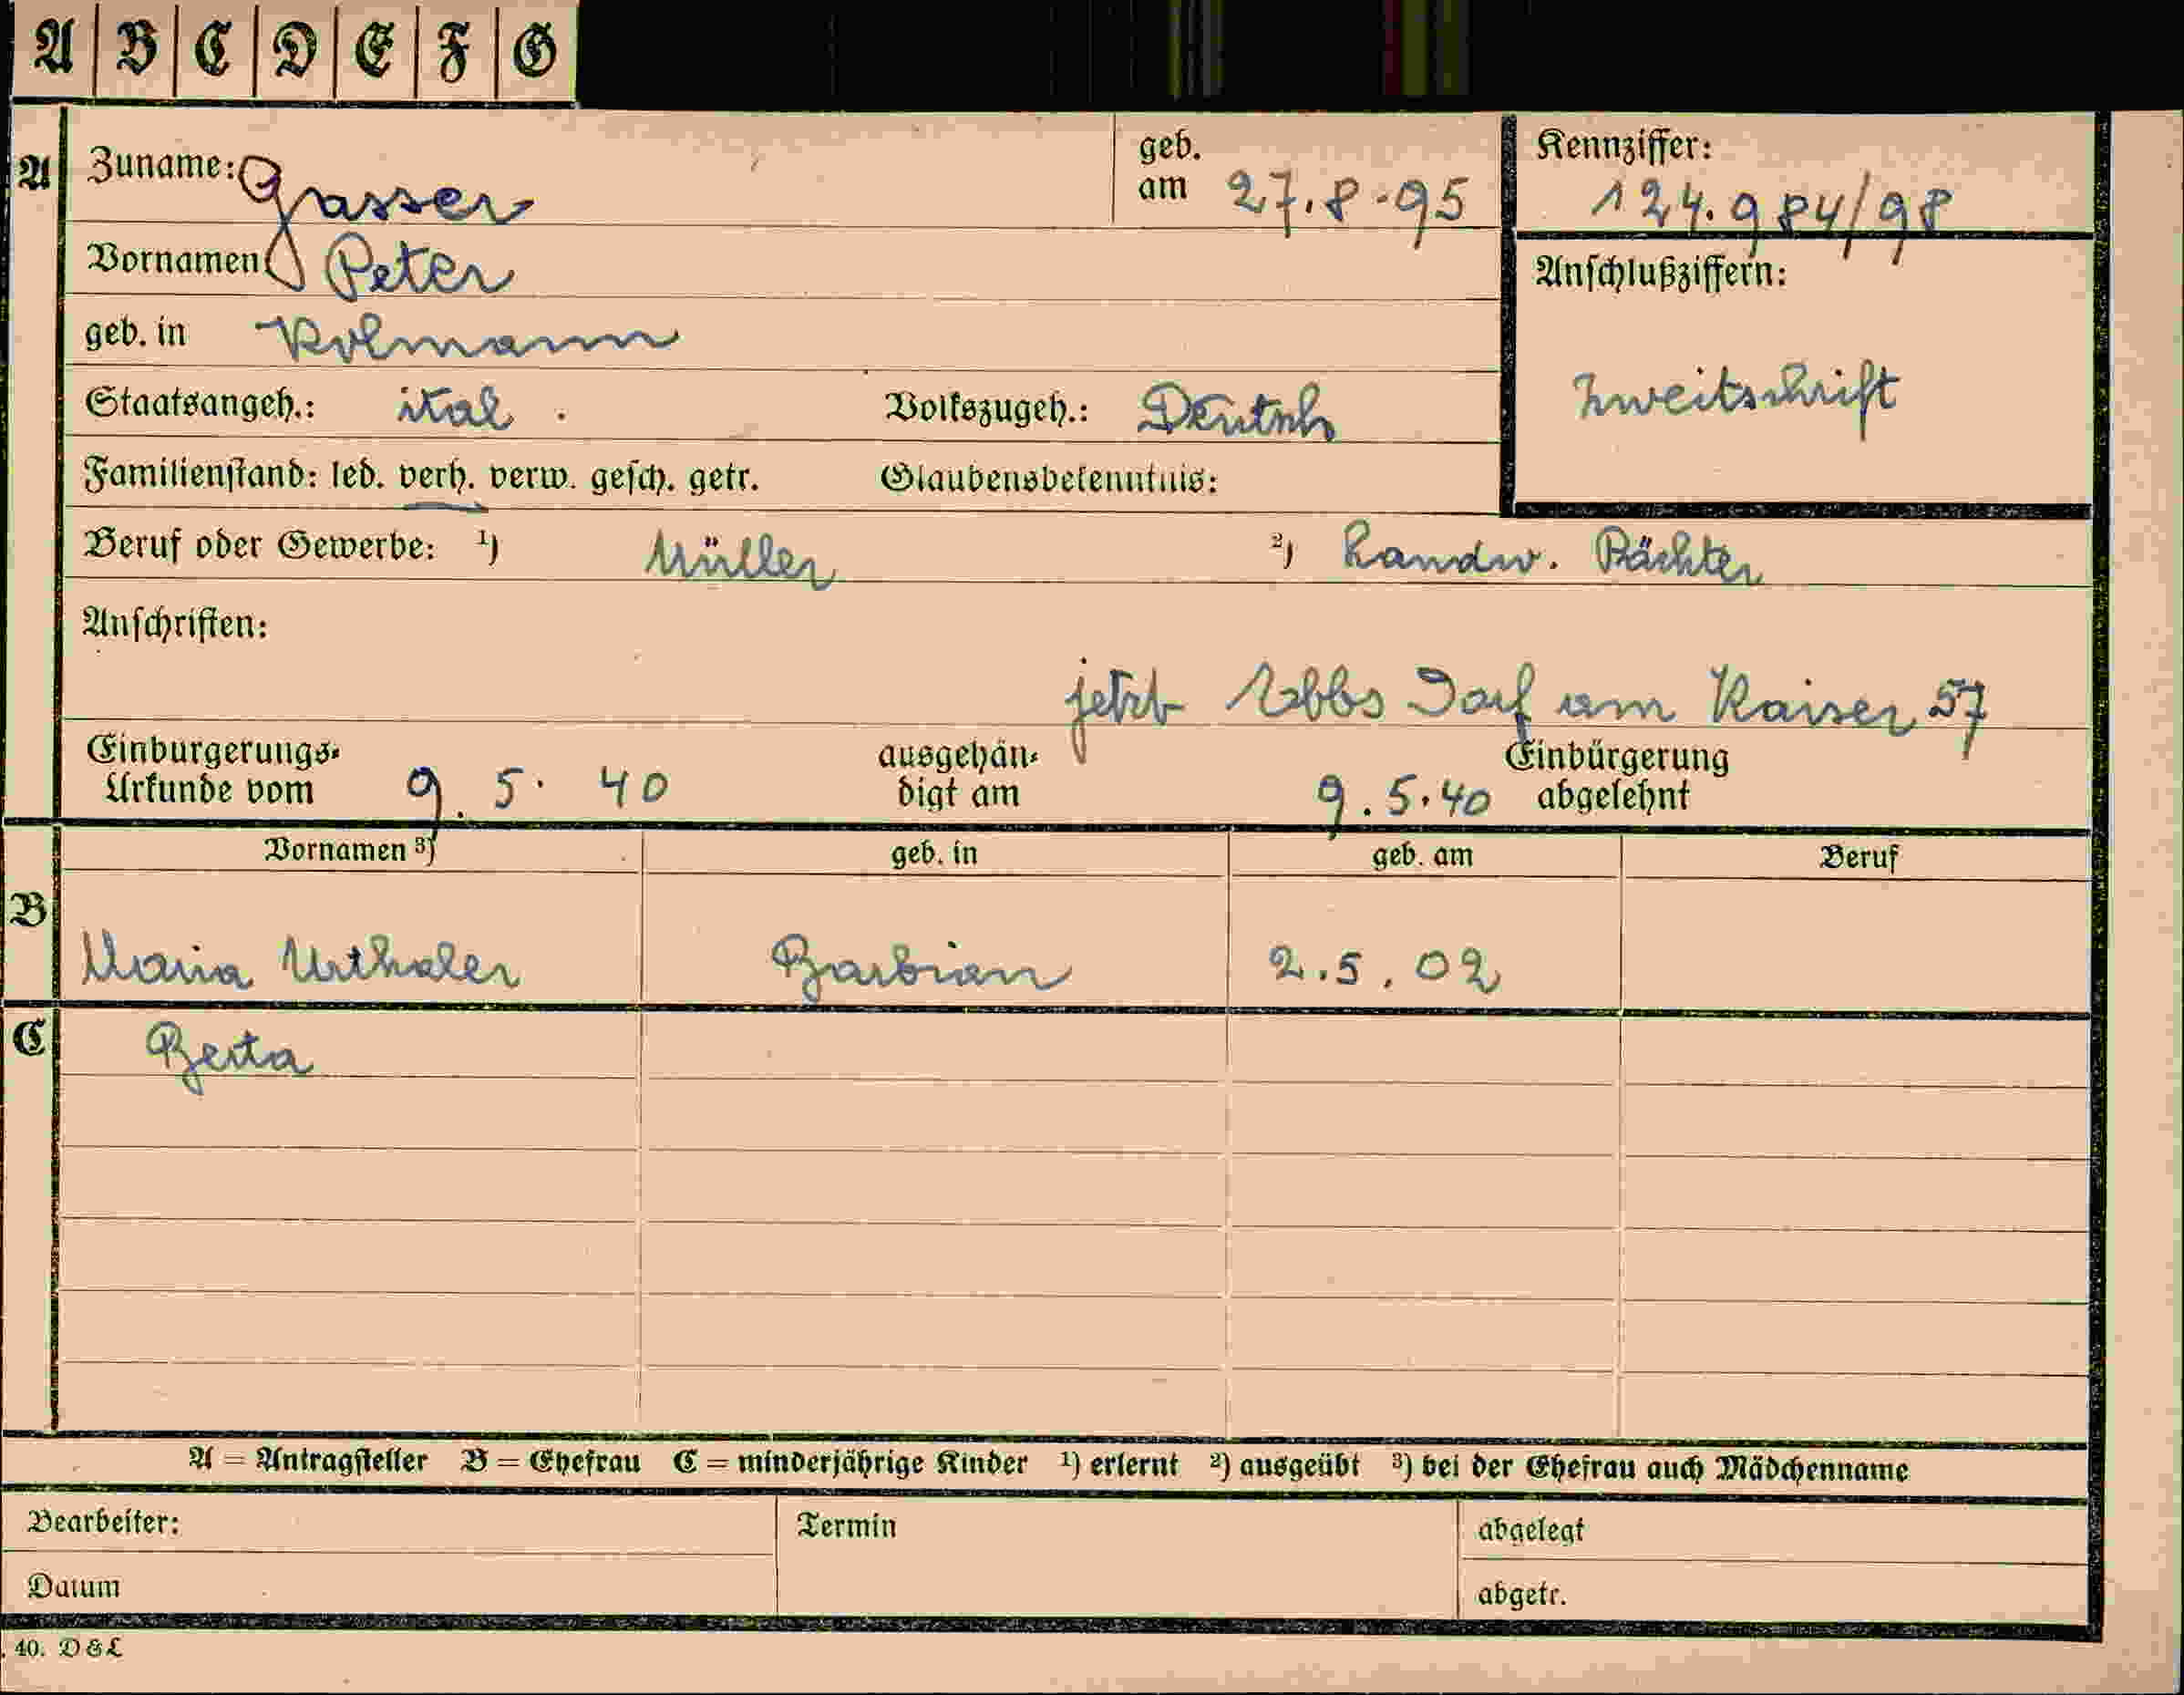 A B C D E F G
A Zuname: Gasser geb. am 27.8.95 Kennziffer: 124.984/98
Vornamen Peter Anschlußziffern:
geb. in Kolmann Zweitschrift
Staatsangeh.: ital. Volkszugeh.: Deutsch
Familienstand: led. verh. verw. gesch. getr. Glaubensbekenntnis:
Beruf oder Gewerbe: 1) Müller 2) Landw. Pächter
Anschriften:
jetzt Ebbs Dorf am Kaiser 57
Einbürgerungs- ausgehän- Einbürgerung
Urkunde vom 9. 5. 40 digt am 9.5.40 abgelehnt
Vornamen 3) geb. in geb. am Beruf
B Maria Urthaler Barbian 2.5.02
C Berta
A = Antragsteller B = Ehefrau C = minderjährige Kinder 1) erlernt 2) ausgeübt 3) bei der Ehefrau auch Mädchenname
Bearbeiter: Termin abgelegt
Datum abgetr.
40. D & L